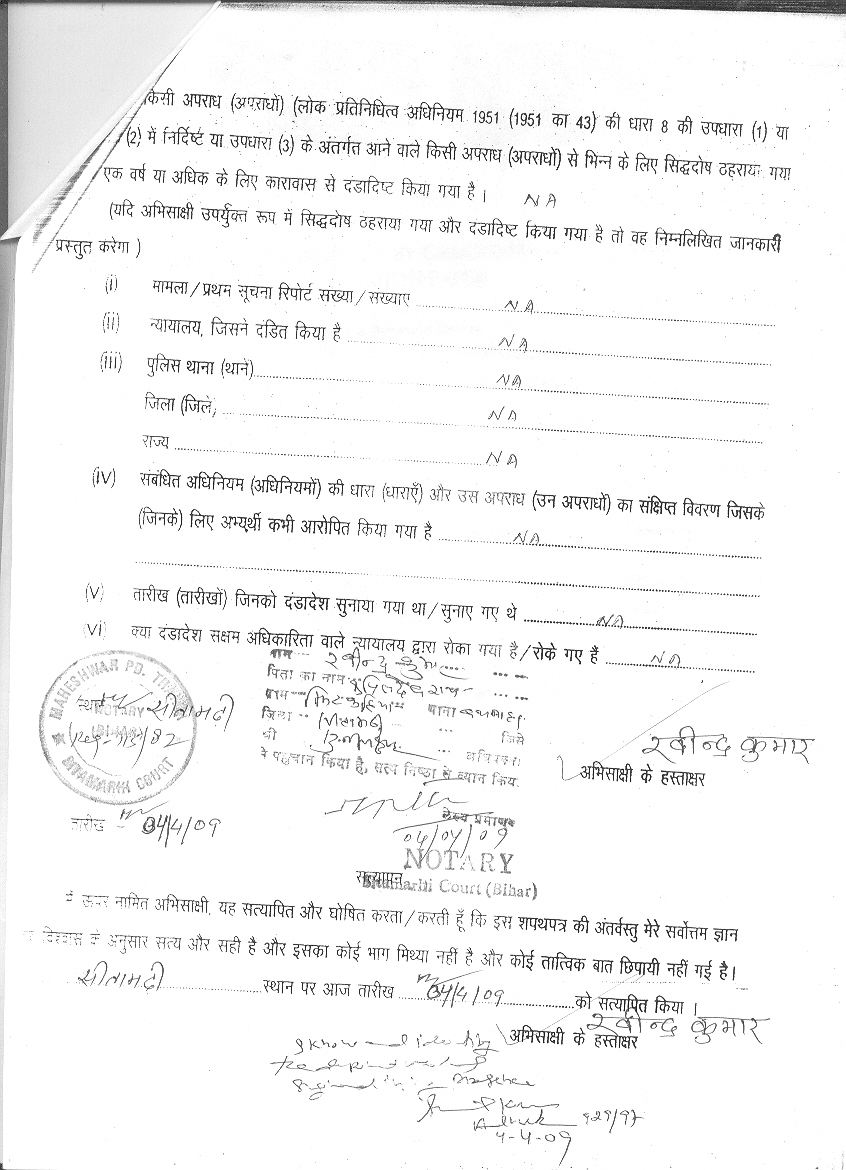 किसी अपराध (अपराधों) (लोक प्रतिनिधित्व अधिनियम 1951 (1951 का 43) की धारा 8 की उपधारा (1) या
(2) में निर्दिष्ट या उपधारा (3) के अंतर्गत आने वाले किसी अपराध (अपराधों) से भिन्न के लिए सिद्धदोष ठहराया गया
एक वर्ष या अधिक के लिए कारावास से दंडादिष्ट किया गया है । NA
(यदि अभिसाक्षी उपर्युक्त रूप में सिद्धदोष ठहराया गया और दंडादिष्ट किया गया है तो वह निम्नलिखित जानकारी
प्रस्तुत करेगा )
(i) मामला / प्रथम सूचना रिपोर्ट संख्या / संख्याए NA
(ii) न्यायालय, जिसने दंडित किया है NA
(iii) पुलिस थाना (थाने) NA
जिला (जिले) NA
राज्य NA
(iv) संबंधित अधिनियम (अधिनियमों) की धारा (धाराएँ) और उस अपराध (उन अपराधों) का संक्षिप्त विवरण जिसके
(जिनके) लिए अभ्यर्थी कभी आरोपित किया गया है NA
(v) तारीख (तारीखों) जिनको दंडादेश सुनाया गया था / सुनाए गए थे NA
(vi) क्या दंडादेश सक्षम अधिकारिता वाले न्यायालय द्वारा रोका गया है / रोके गए हैं NA
MAHESHWAR PD.
NOTARY
SITAMARHI COURT
स्थान सीतामढ़ी
नाम रवीन्द्र कुमार
पिता का नाम
ग्राम थाना
जिला जिसे
श्री अधिवक्ता
ने पहचान किया है, सत्य निष्ठा से ब्यान किय
रवीन्द्र कुमार
अभिसाक्षी के हस्ताक्षर
तारीख 04/4/09
04/04/09
NOTARY
Sitamarhi Court (Bihar)
सत्यापन
मैं ऊपर नामित अभिसाक्षी, यह सत्यापित और घोषित करता / करती हूँ कि इस शपथपत्र की अंतर्वस्तु मेरे सर्वोत्तम ज्ञान
विश्वास के अनुसार सत्य और सही है और इसका कोई भाग मिथ्या नहीं है और कोई तात्विक बात छिपायी नहीं गई है।
सीतामढ़ी स्थान पर आज तारीख 04/4/09 को सत्यापित किया ।
रवीन्द्र कुमार
अभिसाक्षी के हस्ताक्षर
I know and identify
929/97
4-4-09